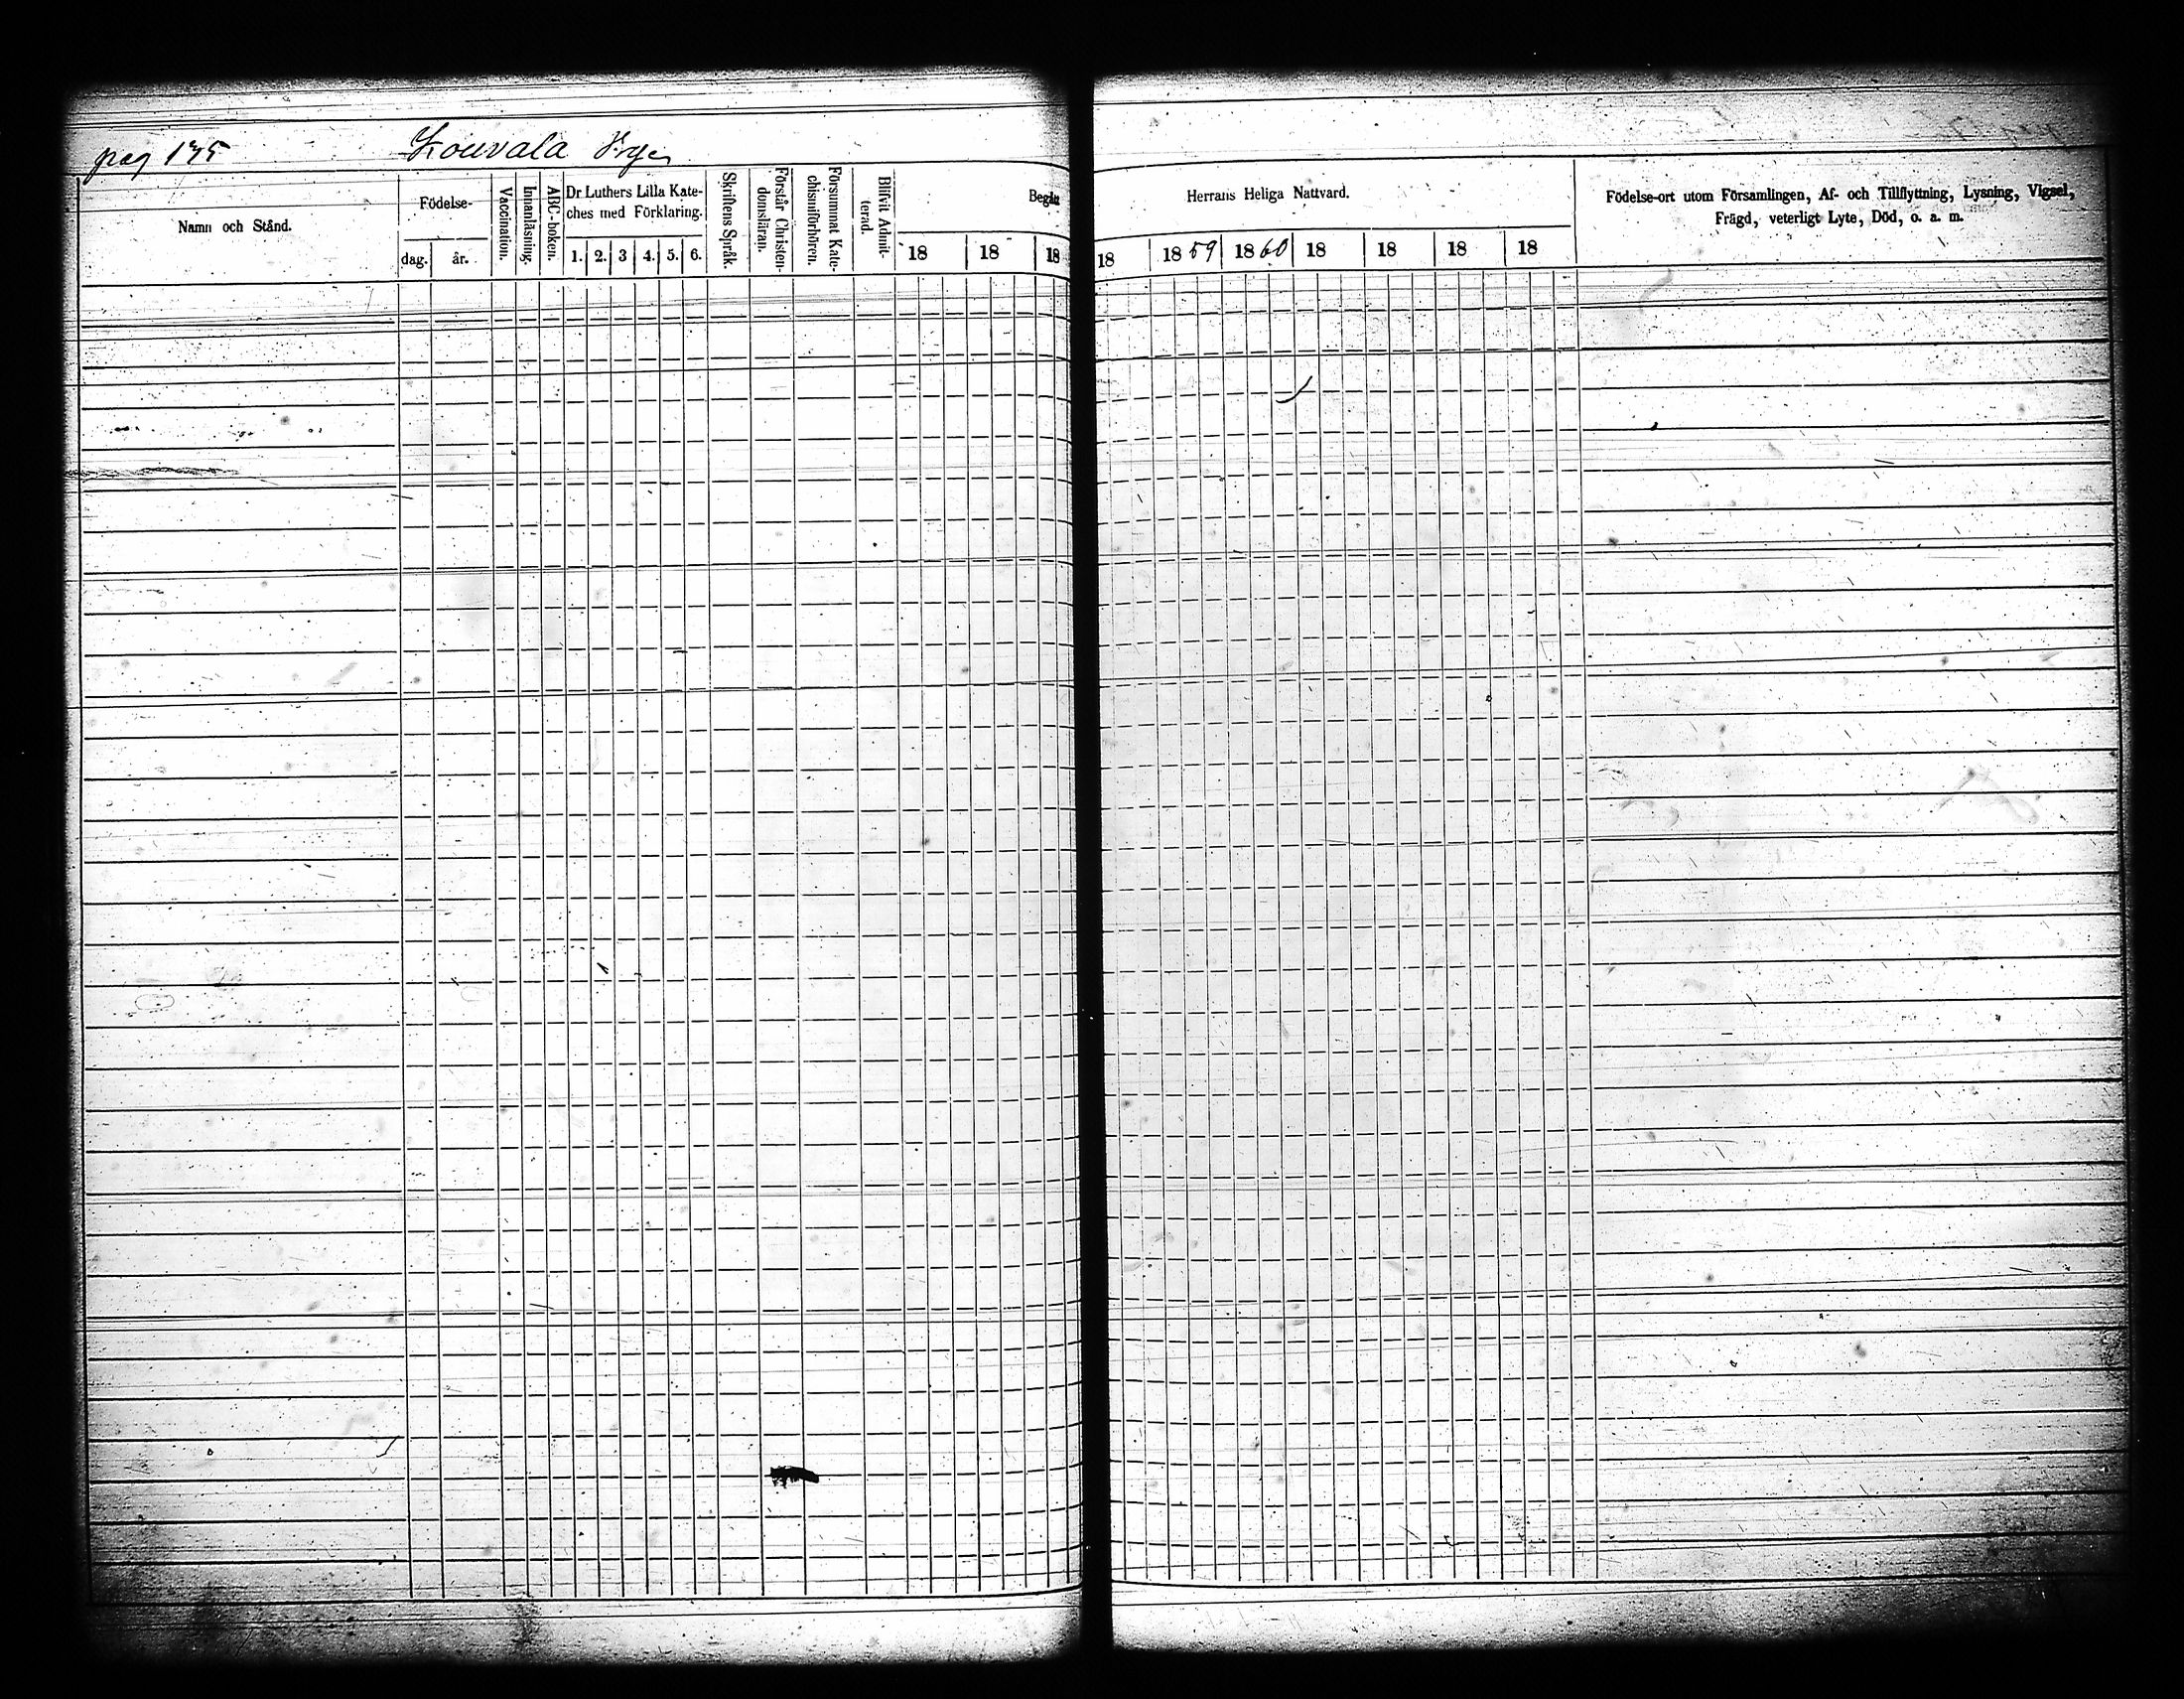 pag 175 Kouvala
Namn och Stånd.
Födelse-
dag. år.
Vaccination.
Innanläsning.
ABC-boken.
Dr Luthers Lilla Kate-
ches med Förklaring.
1. 2. 3 4. 5. 6.
Skriftens Språk.
Förstår Christen-
domsläran.
Försummat Kate-
chismiförhören.
Blifvit Admit-
terad.
Begått
18 18 18
Herrans Heliga Nattvard.
18 1859 1860 18 18 18 18
Födelse-ort utom Församlingen, Af- och Tillflyttning, Lysning, Vigsel,
Frägd, veterligt Lyte, Död, o. a. m.